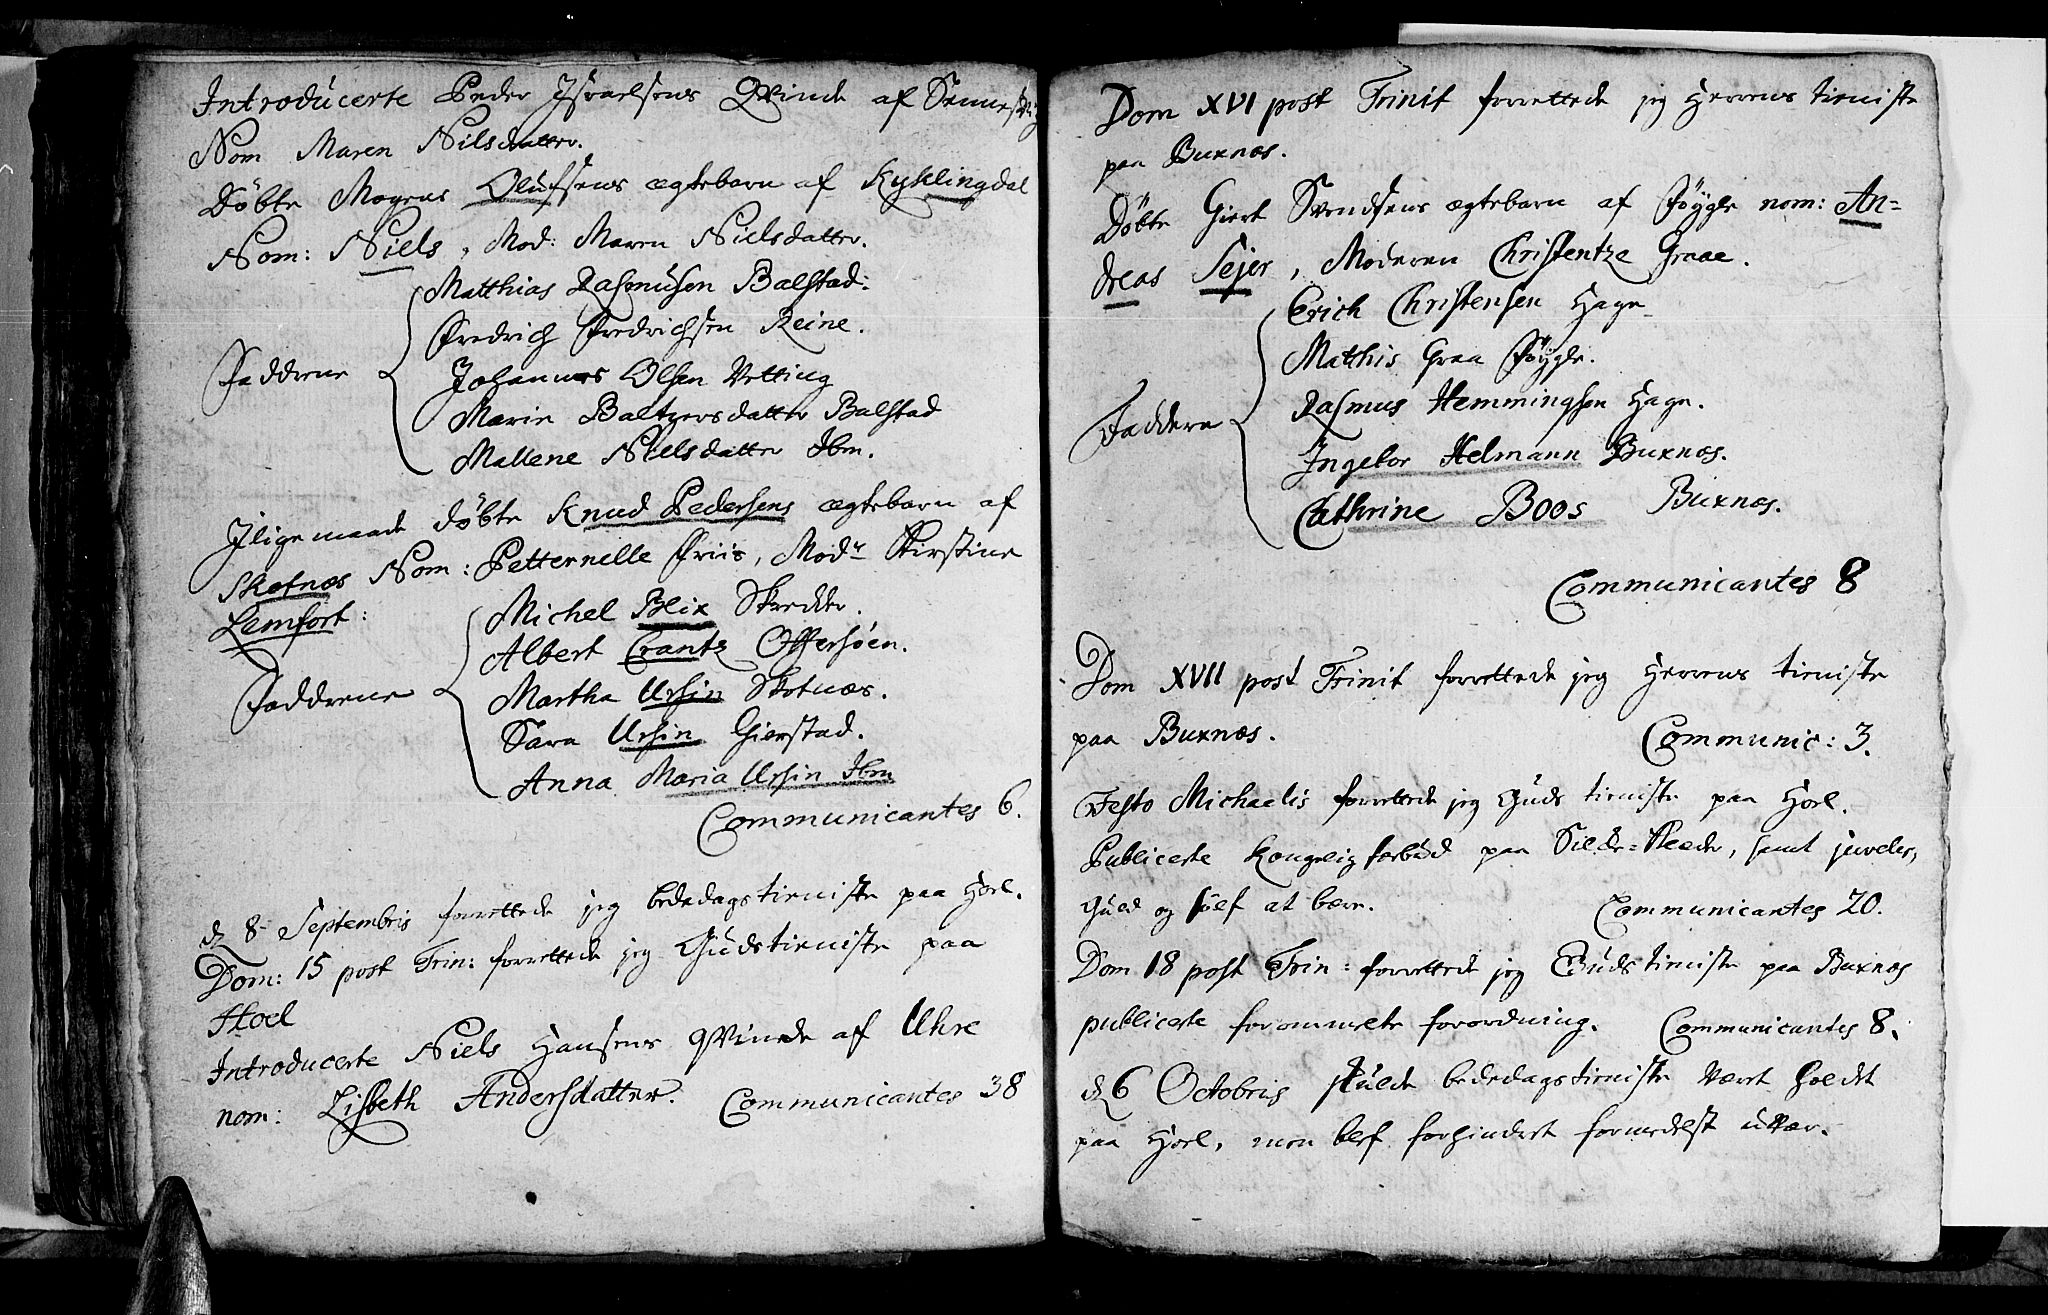 Introducerte Peder Israelsens Qvinde af Sennesvig
Nom Maren Nilsdatter.
Döbte Mogens Olufsens ægtebarn af Kyklingdal
Nom: Niels, Mod: Maren Nielsdatter.
Matthias Rasmusen Balstad:
Fredrich Fredrichsen Reine.
Fadderne
Johannes Olsen Vetting
Marin Baltzersdatter Balstad
Mallene Nielsdatter Ibm.
Iligemaade döbte Knud Pedersens ægtebarn af
Skotnæs Nom: Petternille Friis, Modr Kirstine
Lemfort:
Michel Blix Skredder.
Albert Crantz Offersöen.
Fadderne
Martha Ursin Skotnæs.
Sara Ursin Gierstad.
Anna Maria Ursin Ibm
Communicantes 6.
d 8 Septembris forrettede jeg bededagstieniste paa Hoel.
Dom: 15 post Trin: forrettede jeg Gudstieniste paa
Hoel
Introducerte Niels Hansens qvinde af Uhre
nom: Lisbeth Andersdatter. Communicantes 38
Dom XVI post Trinit forrettede jeg Herrens tieniste
paa Buxnæs.
Döbte Giert Svendsens ægtebarn af Föÿgle nom: An=
dreas Sejer, Moderen Christentze Graae.
Erich Christensen Hage
Matthis Graa Föÿgle.
Faddere
Rasmus Hemmingsen Hage.
Ingebor Helmann Buxnæs.
Cathrine Boos Buxnæs.
Communicantes 8
Dom XVII post Trinit forrettede jeg Herrens tieniste
paa Buxnæs. Communic: 3.
Festo Michaelis forrettede jeg Guds tieniste paa Hoel.
Publicerte Kongelig forbud paa Silde=Klæder, samt juveler,
Guld og sölf at bære. Communicantes 20.
Dom 18 post Trin: forrettede jeg Gudstieniste paa Buxnæs
publicerte forommelte forordning. Communicantes 8.
d 6 Octobris skulde bededagstieniste vært holdet
paa Hoel, men blef forhindret formedelst uvær.